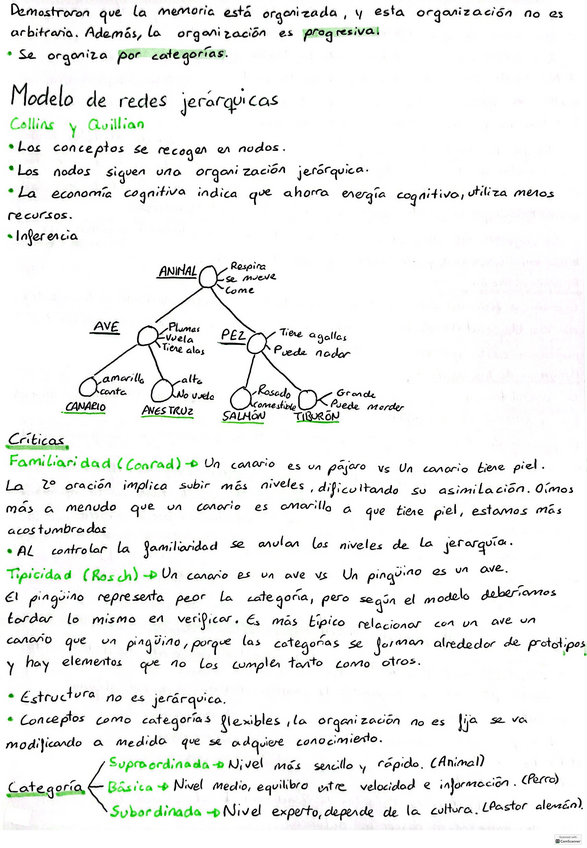 Demostraron que la memoria está organizada, y esta organización no es
arbitraria. Además, la organización es progresiva.
• Se organiza por categorías.
Modelo de redes jerárquicas
Collins y Quillian
• Los conceptos se recogen en nudos.
• Los nodos siguen una organización jerárquica.
• La economía cognitiva indica que ahorra energía cognitiva, utiliza menos
recursos.
• Inferencia
ANIMAL
Respira
Se mueve
Come
AVE
Plumas
Vuela
Tiene alas
PEZ
Tiene agallas
Puede nadar
amarillo
canta
CANARIO
alta
No vuela
AVESTRUZ
Rosado
comestible
SALMÓN
Grande
Puede morder
TIBURÓN
Críticas
Familiaridad (Conrad) → Un canario es un pájaro vs Un canario tiene piel.
La 2º oración implica subir más niveles, dificultando su asimilación. Oímos
más a menudo que un canario es amarillo a que tiene piel, estamos más
acostumbrados
• Al controlar la familiaridad se anulan los niveles de la jerarquía.
Tipicidad (Rosch) → Un canario es un ave vs Un pingüino es un ave.
El pingüino representa peor la categoría, pero según el modelo deberíamos
tardar lo mismo en verificar. Es más típico relacionar con un ave un
canario que un pingüino, porque las categorías se forman alrededor de prototipos
y hay elementos que no los cumplen tanto como otros.
• Estructura no es jerárquica.
• Conceptos como categorías flexibles, la organización no es fija se va
modificando a medida que se adquiere conocimiento.
Categoría
Supraordinada → Nivel más sencillo y rápido. (Animal)
Básica → Nivel medio, equilibro entre velocidad e información. (Perro)
Subordinada → Nivel experto, depende de la cultura. (Pastor alemán).
CamScanner